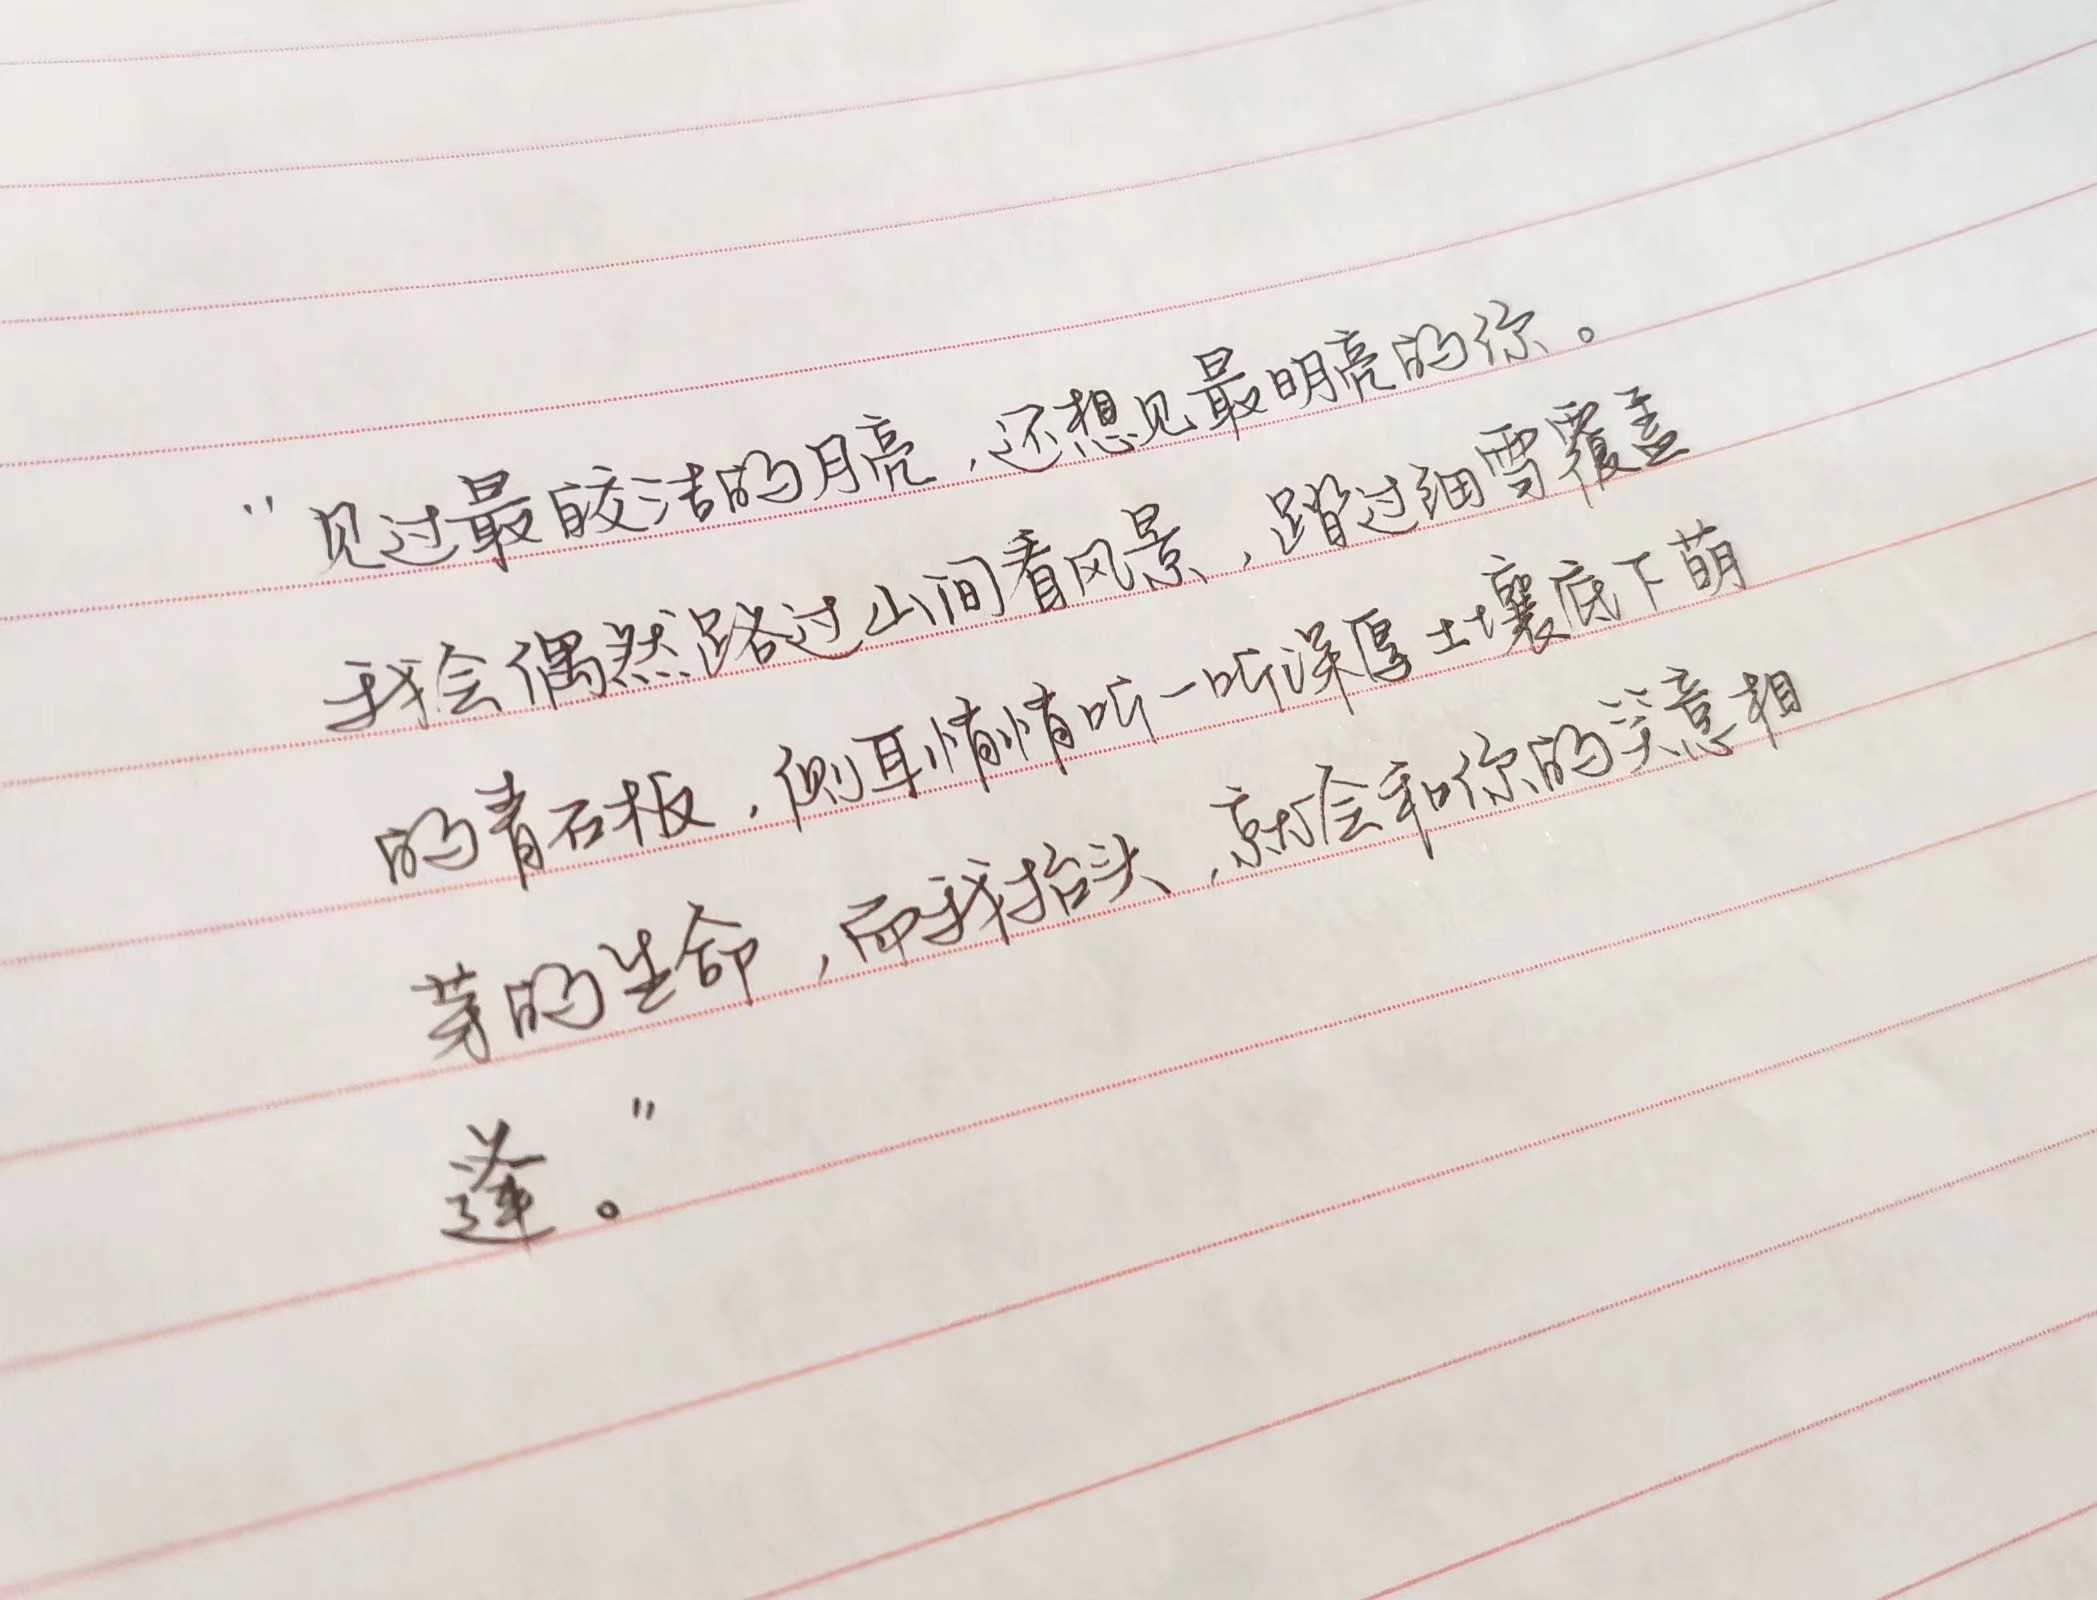 "见过最皎洁的月亮，还想见最明亮的你。
我会偶然路过山间看风景，踏过细雪覆盖
的青石板，侧耳悄悄听一听深厚土壤底下萌
芽的生命，而我抬头，就会和你的笑意相
逢。"